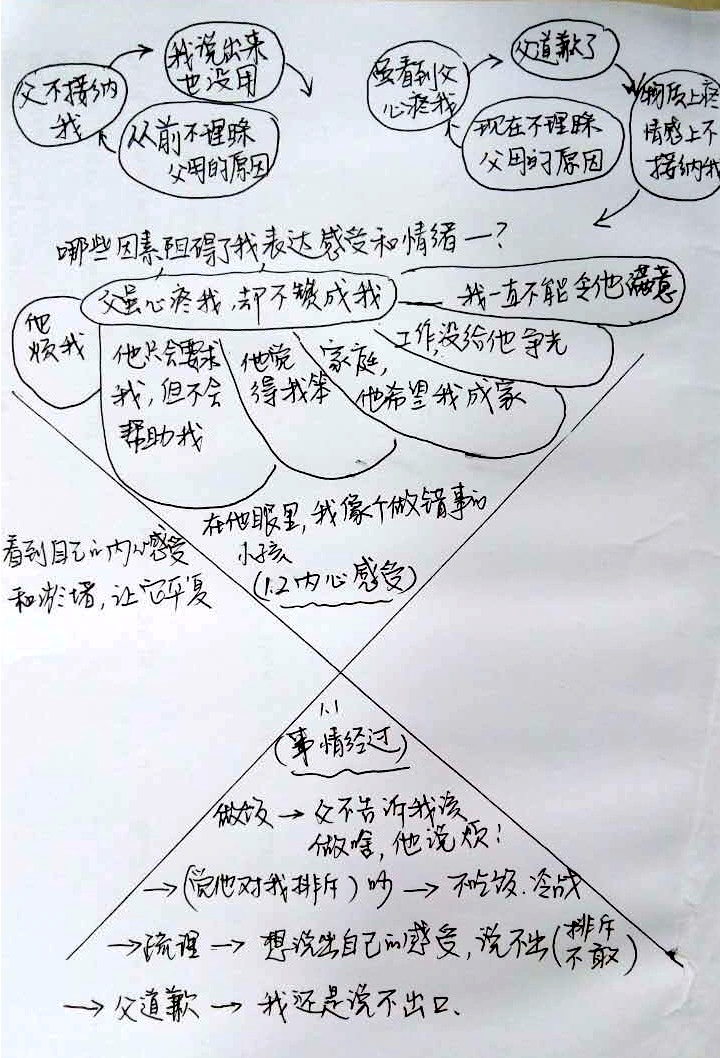 父不接纳
我
我说出来
也没用
从前不理睬
父母的原因
虽看到父
心疼我
父道歉了
物质上疼
情感上不
接纳我
现在不理睬
父母的原因
哪些因素阻碍了我表达感受和情绪一?
父虽心疼我,却不赞成我
我一直不能令他满意
他
烦我
他只会要求
我,但不会
帮助我
他觉
得我笨
家庭,
他希望我成家
工作,没给他争光
在他眼里,我像个做错事的
小孩
(1.2内心感受)
看到自己的内心感受
和淤堵,让它平复
1.1
(事情经过)
做饭→父不告诉我该
做啥,他说烦!
→(觉他对我排斥)吵→不吃饭.冷战
→梳理→想说出自己的感受,说不出(排斥
不敢)
→父道歉→我还是说不出口.